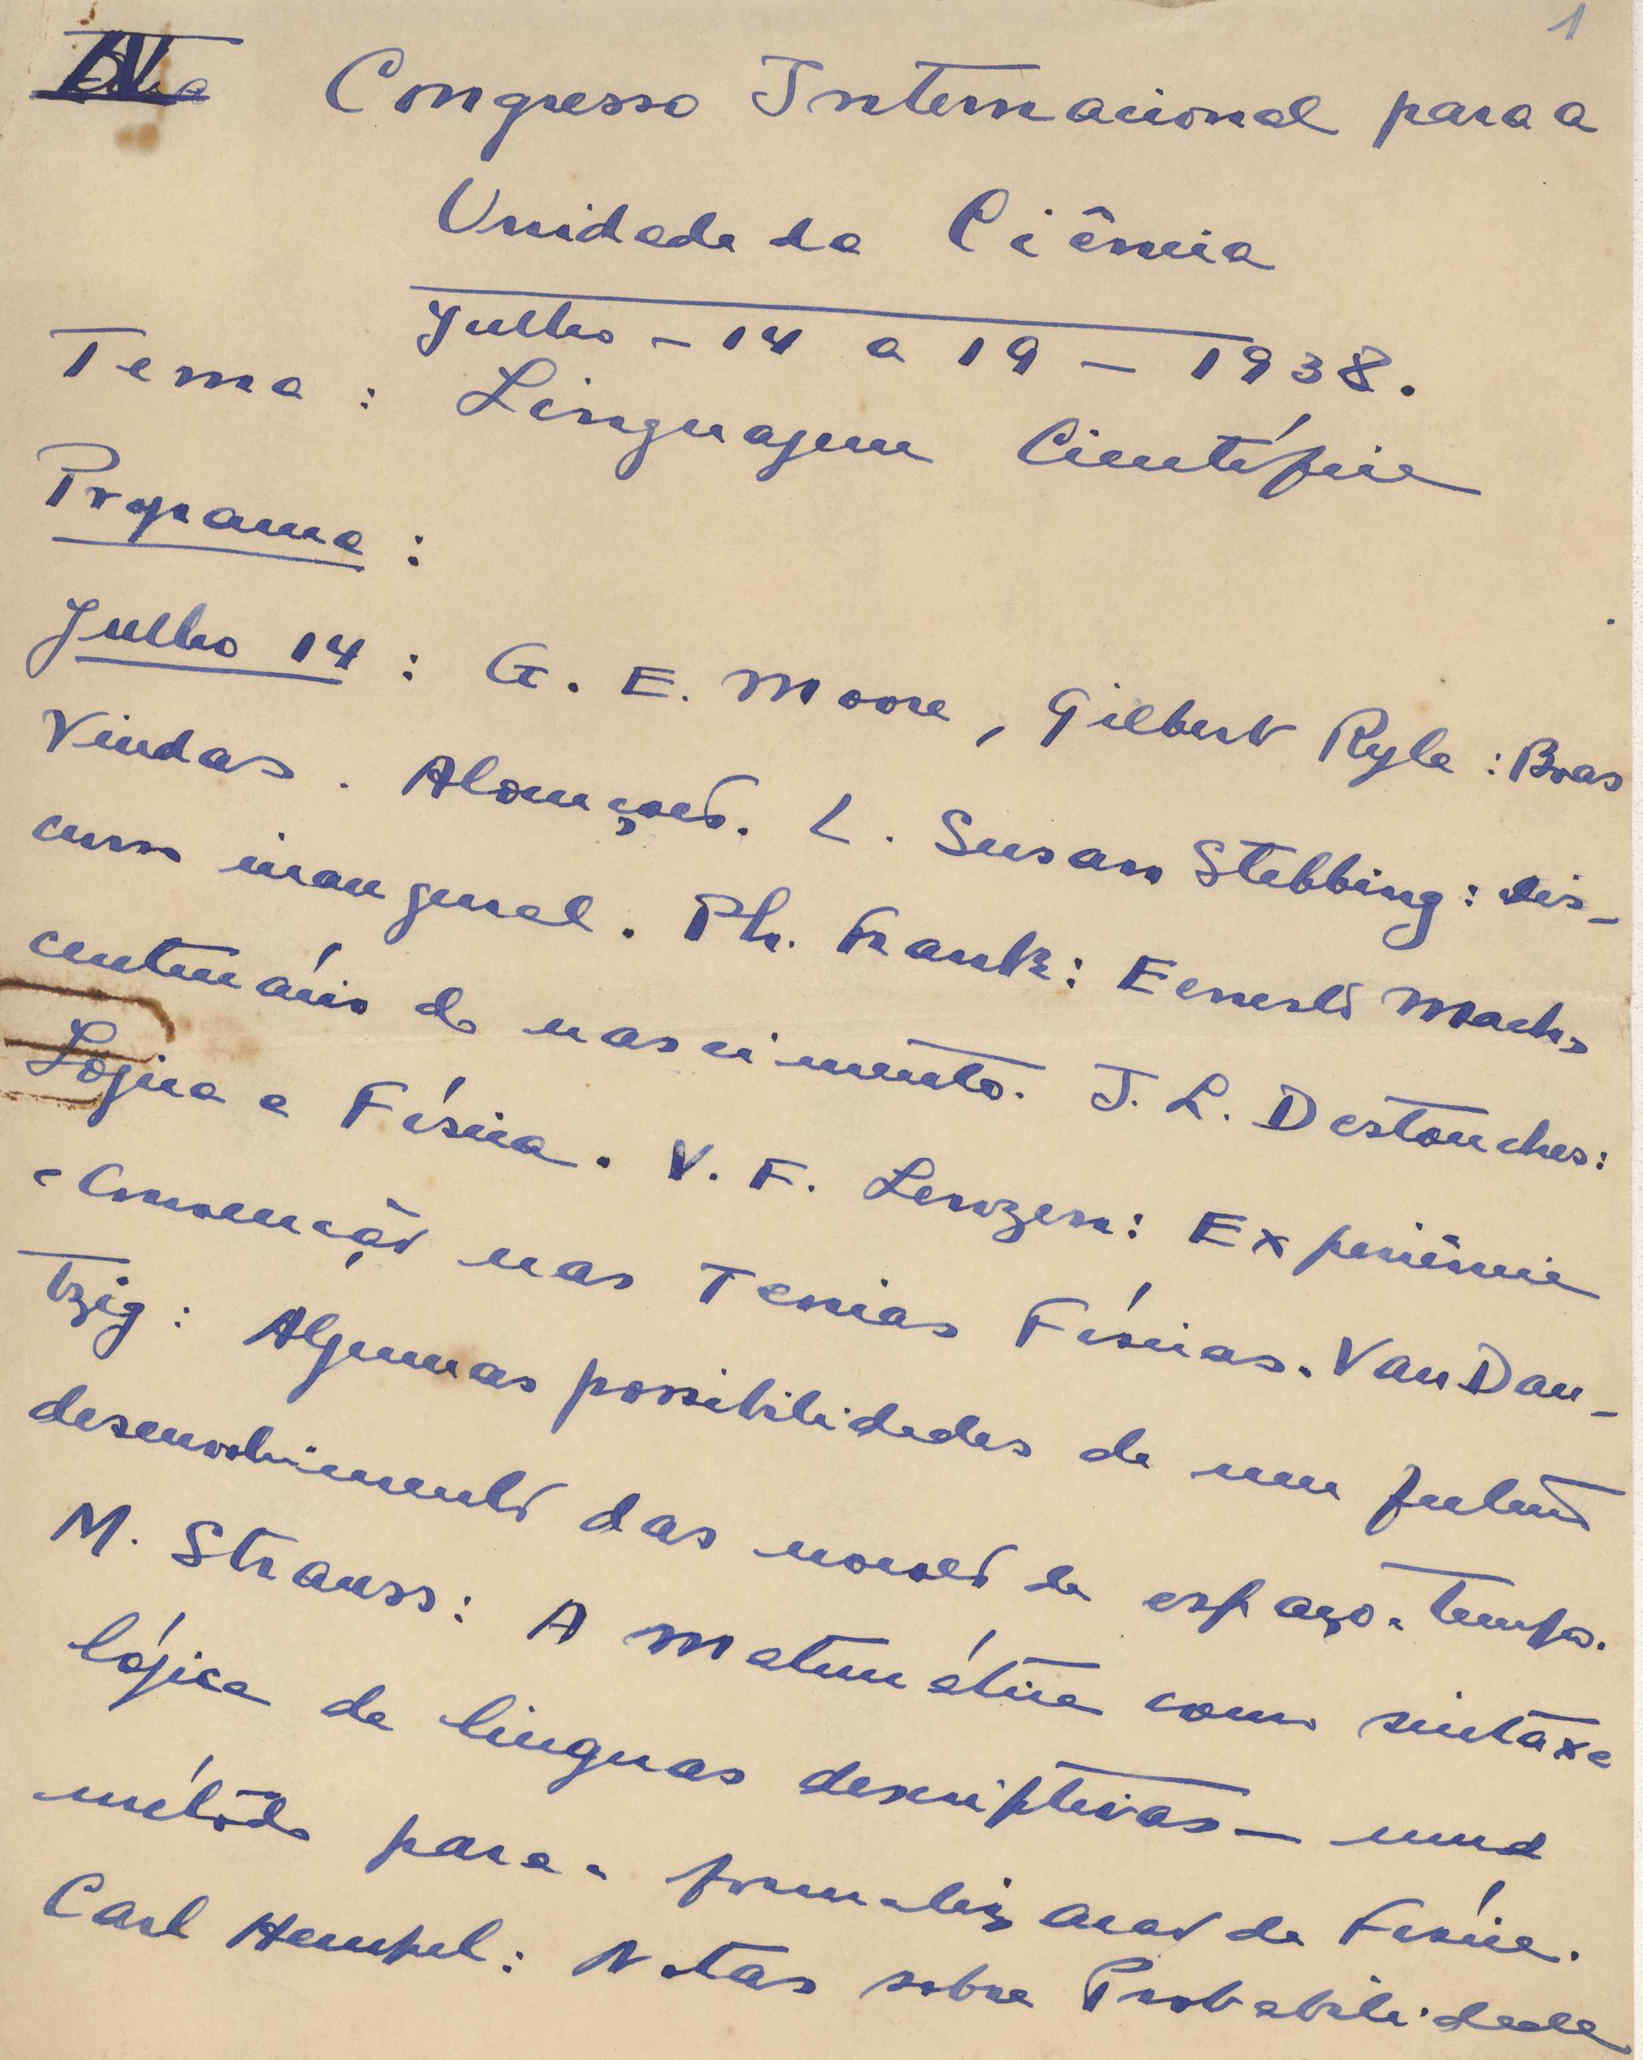 1
IV Congresso Internacional para a
Unidade da Ciência
Julho - 14 a 19 - 1938.
Tema : Linguagem Científica
Programa :
Julho 14 : G. E. Moore, Gilbert Ryle : Boas
Vindas. Alocuções. L. Susan Stebbing : dis-
curso inaugural. Ph. Frank : Ernesto Mach,
centenário do nascimento. J. L. Destouches :
Lógica e Física. V. F. Lenzen : Experiência
e Convenção nas Teorias Físicas. Van Dan-
tzig : Algumas possibilidades de um futuro
desenvolvimento das noções de espaço e tempo.
M. Strauss : A Matemática como sintaxe
lógica de linguas descriptivas -
método para a formalização da Física.
Carl Hempel : Notas sobre Probabilidade